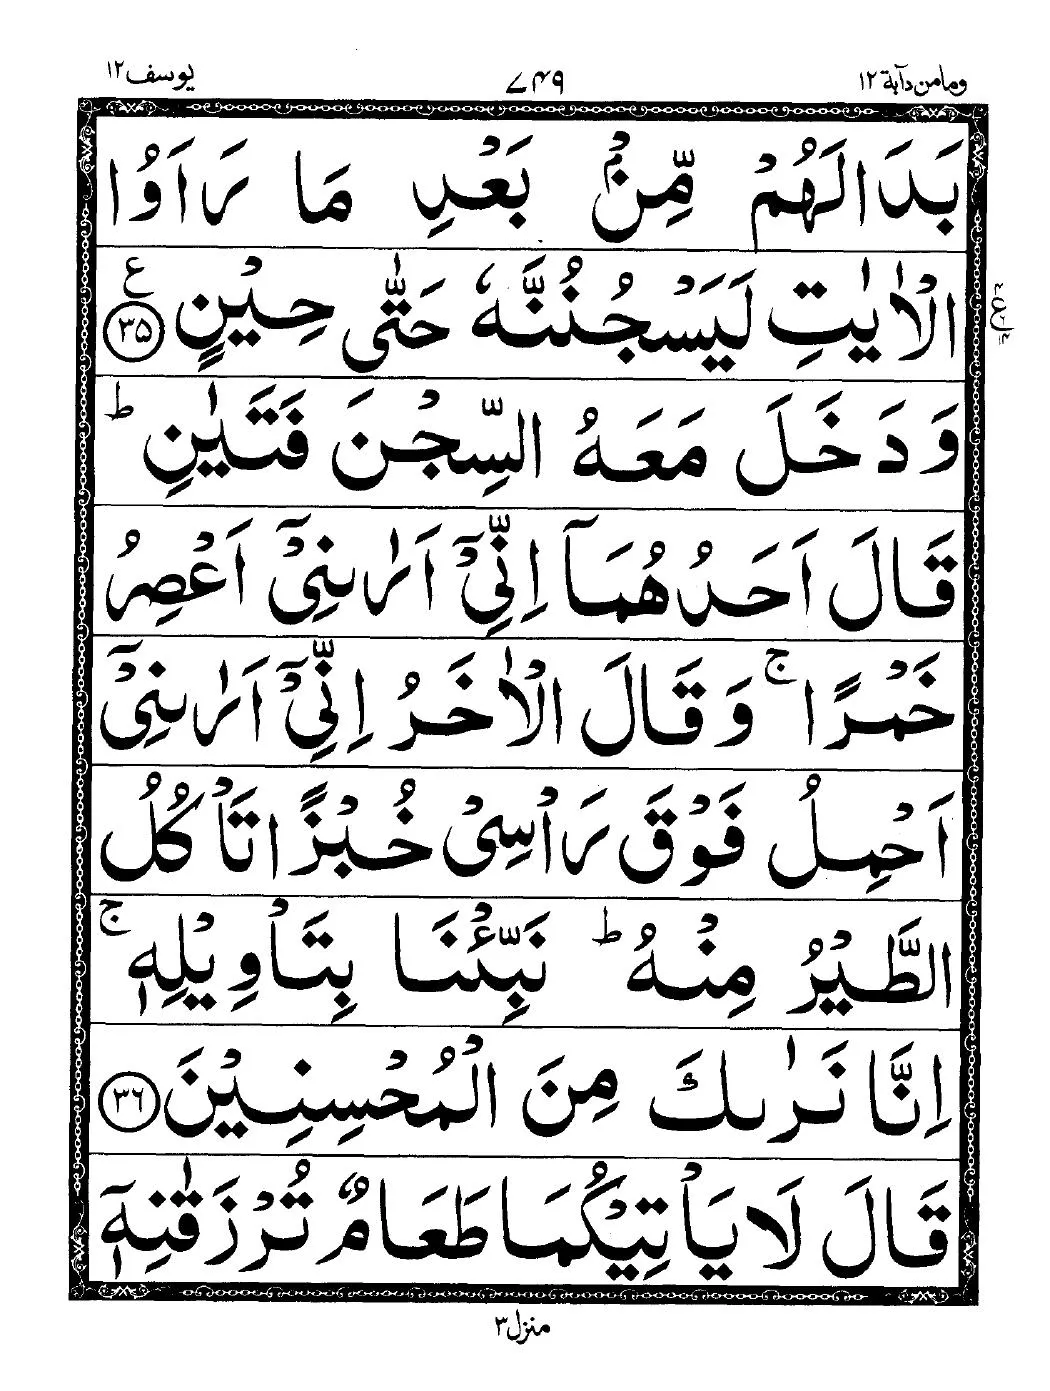 وما من دآبة ١٢ ٧٤٩ يوسف ١٢
بَدَالَهُمْ مِّنْۢ بَعْدِ مَا رَاَوُا
الْاٰيٰتِ لَيَسْجُنُنَّهٗ حَتّٰى حِيْنٍ ع ٣٥
وَ دَخَلَ مَعَهُ السِّجْنَ فَتَيٰنِ ط
قَالَ اَحَدُهُمَاۤ اِنِّىْۤ اَرٰىنِىْۤ اَعْصِرُ
خَمْرًا ج وَ قَالَ الْاٰخَرُ اِنِّىْۤ اَرٰىنِىْۤ
اَحْمِلُ فَوْقَ رَاْسِىْ خُبْزًا تَاْكُلُ
الطَّيْرُ مِنْهُ ط نَبِّئْنَا بِتَاْوِيْلِهٖ ج
اِنَّا نَرٰىكَ مِنَ الْمُحْسِنِيْنَ ٣٦
قَالَ لَا يَاْتِيْكُمَا طَعَامٌ تُرْزَقٰنِهٖۤ
منزل ٣